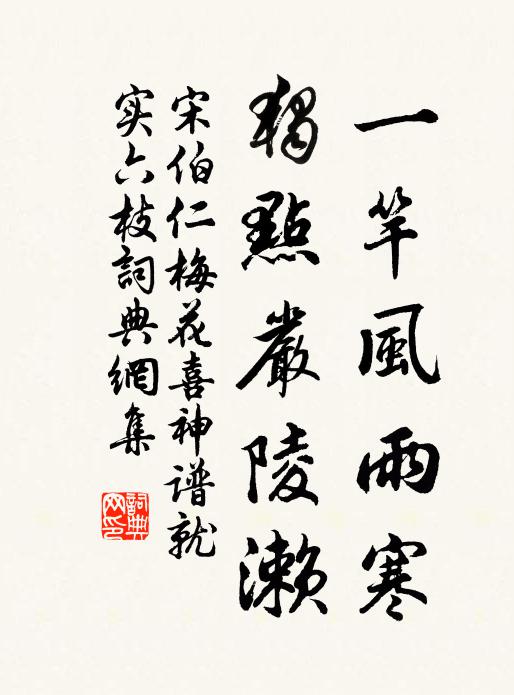 一竿風雨寒
獨點嚴陵瀨
宋伯仁梅花喜神谱就
实六枝詞典網集
詞典
网印